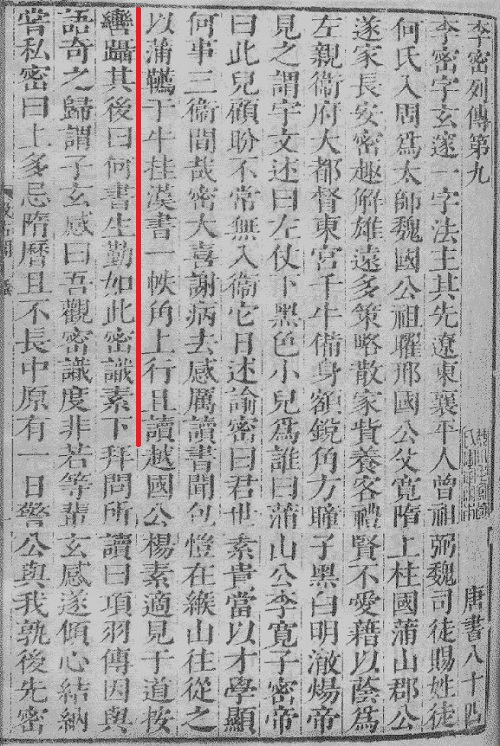 李密列傳第九 唐書八十四
李密字玄邃一字法主其先遼東襄平人曾祖弼魏司徒賜姓徒
何氏入周爲太師魏國公祖曜邢國公父寬隋上柱國蒲山郡公
遂家長安密趣解雄遠多策略散家貲養客禮賢不愛藉以蔭爲
左親衞府大都督東宮千牛備身額銳角方瞳子黑白明澈煬帝
見之謂宇文述曰左仗下黑色小兒爲誰曰蒲山公李寬子密帝
曰此兒顧盼不常無入衞它日述諭密曰君世素貴當以才學顯
何事三衞間哉密大喜謝病去感厲讀書聞包愷在緱山往從之
以蒲韉于牛挂漢書一帙角上行且讀越國公楊素適見于道按
轡躡其後曰何書生勤如此密識素下拜問所讀曰項羽傳因與
語奇之歸謂子玄感曰吾觀密識度非若等輩玄感遂傾心結納
嘗私密曰上多忌隋曆且不長中原有一日警公與我孰後先密